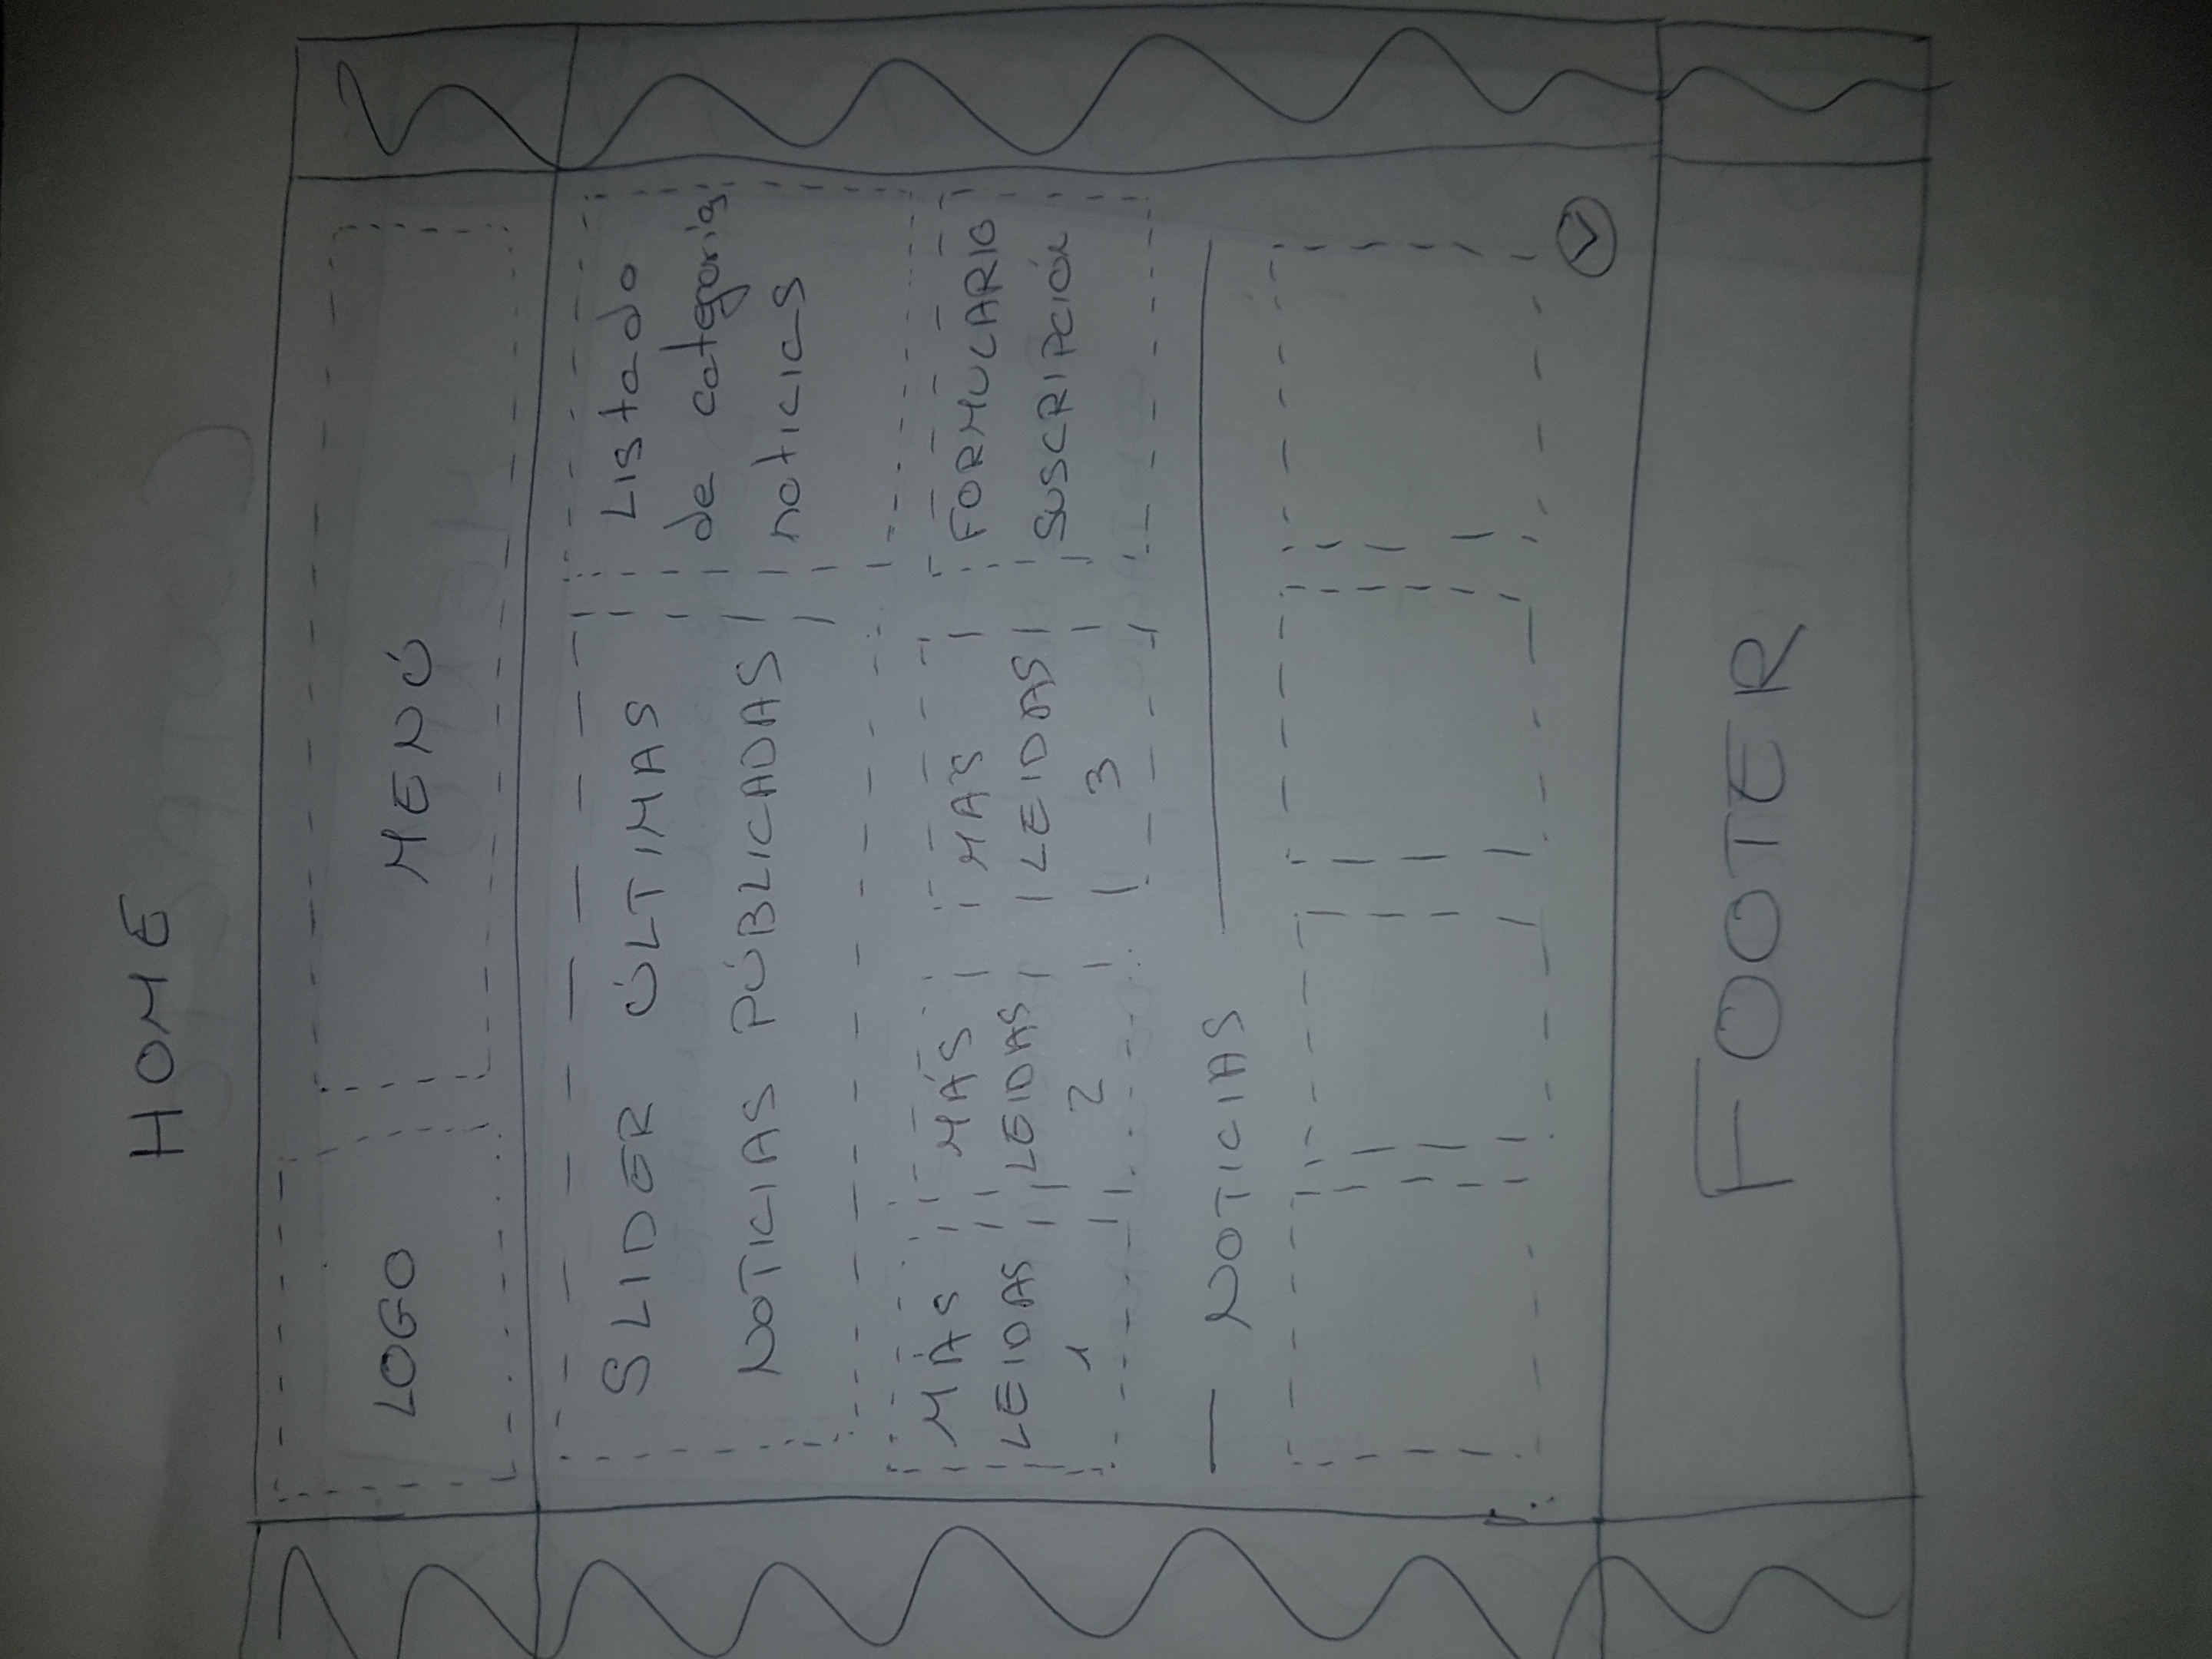 HOME
LOGO
MENÚ
SLIDER ÚLTIMAS
NOTICIAS PÚBLICADAS
Listado
de categorías
noticias
MÁS
LEIDAS
1
MÁS
LEIDAS
2
MÁS
LEIDAS
3
FORMULARIO
SUSCRIPCIÓN
NOTICIAS
FOOTER